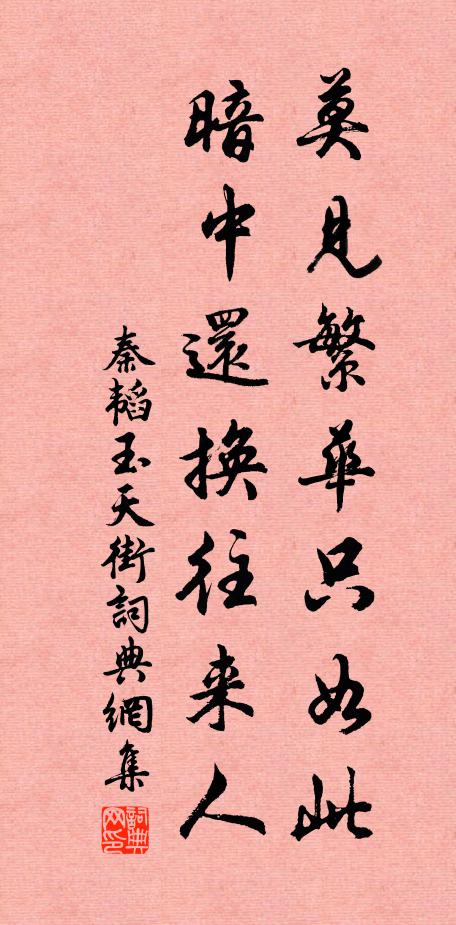 莫見繁華只如此
暗中還換往来人
秦韜玉天街詞典網集
詞典网印